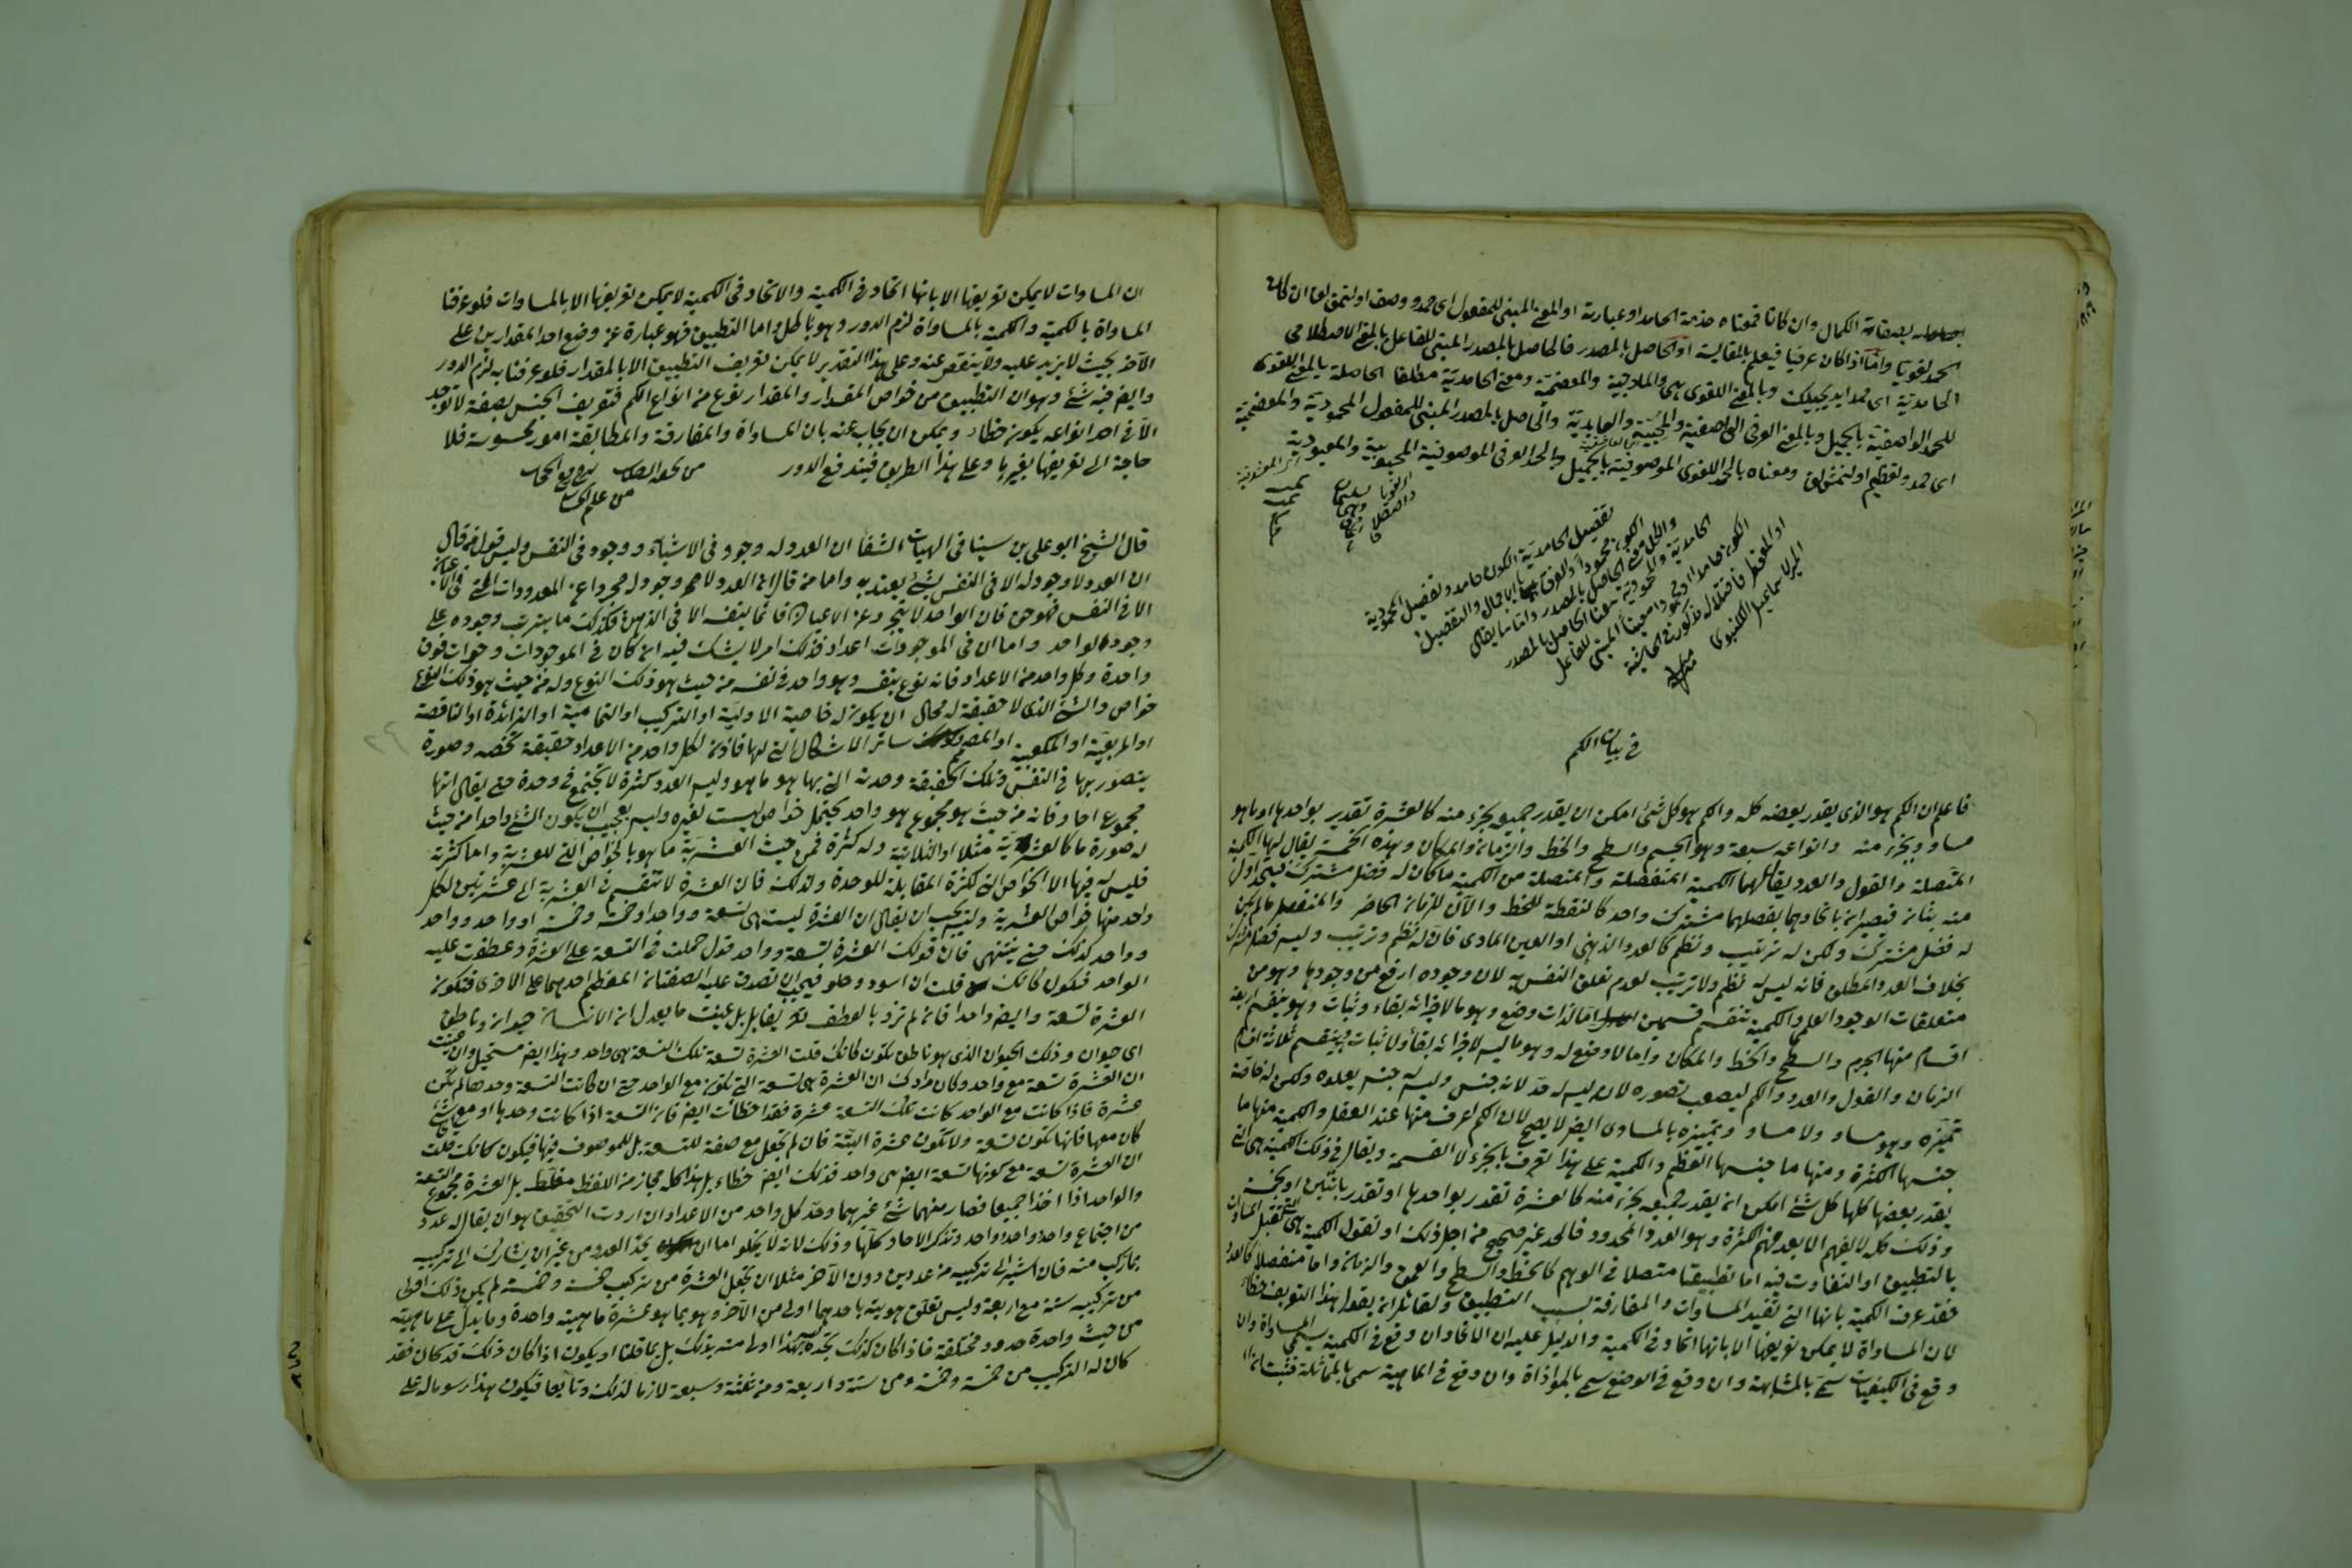 بصفات الكمال وان كانا فمعناه حذمة الحامد او عبارته او المعنى المبنى للمفعول اى حمد ووصف او لتمنى لغة ان كان
الحمد لغويا واما اذا كان عرفيا فيعلم بالمقايسة او الحاصل بالمصدر فالحاصل بالمصدر المبنى للفاعل بالمعنى الاصطلاحى
الحامدية اى حمد ايد يجيبلك وبالمعنى اللغوى هى والمادحية والمعضمية ومعنى الحامدية مطلقا الحاصلة بالمعنى اللغوى
للحمد الواصفية بالجميل وبالمعنى العرفى الواصفية والمحبية والعابدية والحاصل بالمصدر المبنى للمفعول المحمودية والمعضمية
اى حمد وتعظيم اولنمشلق ومعناه بالحمد اللغوى الموصوفية بالجميل وبالحمد العرفى الموصوفية المحبوبية والمعبودية
تفصيل الحامدية الكون حامدا وتفصيل المحمودية
الكون محمودا والفرق بالاجمال والتفصيل
فى بيان الكم
فاعلم ان الكم هو الذى يقدر بعضه كله والكم هو كل شئ امكن ان يقدر جميعه بجزء منه كالعشرة تقدير بواحدها او ما هو
مساو ويجزء منه وانواعه سبعة وهو الجسم والسطح والخط والزمان والمكان وهذه الخمسة يقال لها الكمية
المتصلة والقول والعدد يقال لهما الكمية المنفصلة والمتصلة من الكمية ما كان له فضل مشترك فيتحد اول
منه بثان فيصيران باتحادهما يفصلهما مشترك واحد كالنقطة للخط والآن للزمان الحاضر والمنفصل ما لم يكن
له فضل مشترك ولكن له ترتيب ونظم كالعدد الذهنى او العين المادى فان له نظم وترتيب وليس فضل مشترك
بخلاف العدد المطلق فانه ليس له نظم ولا ترتيب لعدم تعلق النفس به لان وجوده ارفع من وجودها وهو من
متعلقات الوجود العلمى والكمية تنقسم قسمين اما لذات وضع وهو ما لاجزائه بقاء وثبات وهو ينقسم اربعة
اقسام منها الجرم والسطح والخط والمكان واما لا وضع له وهو ما ليس لاجزائه بقاء ولا ثبات وينقسم ثلاثة اقسام
الزمان والقول والعدد والكم ليصعب تصوره لان ليس له حد لانه جنس وليس له جنس يعلوه ولكن له خاصة
تميزه وهو مساو ولا مساو وتمييزه بالمساوى ايضا لا يصح لان الكم اعرف منها عند العقل والكمية منها ما
جنسها الكثرة ومنها ما جنسها العظم والكمية على هذا تعرف بالجزء لا القسمة ويقال فى ذلك الكمية هى التى
يقدر بعضها كلها كل شئ امكن ان يقدر جميعه بجزء منه كالعشرة تقدر بواحدها او تقدر باثنين او بخمسة
وذلك كله لا يفهم الا بعد فهم الكثرة وهو العدد المحدود فالحد غير صحيح من اجل ذلك او نقول الكمية هى التى تقبل المساواة
بالتطبيق او التفاوت فيه اما تطبيقا متصلا فى الوهم كالخط والسطح والعمق والزمان واما منفصلا كالعدد
فقد عرف الكمية بانها التى تفيد المساوات والمفارقة بسبب التطبيق ولقائل ان يقول هذا التعريف خطأ
لان المساواة لا يمكن تعريفها الا بانها اتحاد فى الكمية والدليل عليه ان الاتحاد ان وقع فى الكمية يسمى المساواة وان
وقع فى الكيفيات سمى بالمشابهة وان وقع فى الوضع سمى بالموازاة وان وقع فى الماهية سمى بالمماثلة فثبت
ان المساوات لا يمكن تعريفها الا بانها اتحاد فى الكمية والاتحاد فى الكمية لا يمكن تعريفها الا بالمساوات فلو عرفنا
المساواة بالكمية والكمية بالمساواة لزم الدور وهو باطل واما التطبيق فهو عبارة عن وضع احد المقدارين على
الآخر بحيث لا يزيد عليه ولا ينقص عنه وعلى هذا التقدير لا يمكن تعريف التطبيق الا بالمقدار فلو عرفنا به لزم الدور
وايضا فيه شئ وهو ان التطبيق من خواص المقدار والمقدار نوع من انواع الكم فتعريف الجنس بصفة لا توجد
الا فى احد انواعه يكون خطاء ويمكن ان يجاب عنه بان المساواة والمفارقة والمطابقة امور محسوسة فلا
حاجة الى تعريفها بغيرها وعلى هذا الطريق فيندفع الدور
قال الشيخ ابو على بن سينا فى الهيات الشفا ان العدد له وجود فى الاشياء ووجود فى النفس وليس قول من قال
ان العدد لا وجود له الا فى النفس بشئ يعتد به واما من قال ان العدد لا وجود له مجرد عن المعدودات التى فى الاعيان
الا فى النفس فهو حق فان الواحد لا يتجرد عن الاعيان قائما بنفسه الا فى الذهن فكذلك ما يترتب وجوده على
وجود الواحد واما ان فى الموجودات اعداد فذلك امر لا يشك فيه ان كان فى الموجودات وحدات فوق
واحدة وكل واحد من الاعداد فانه نوع بنفسه وهو واحد فى نفسه من حيث هو ذلك النوع وله من حيث هو ذلك النوع
خواص والشئ الذى لا حقيقة له محال ان يكون له خاصية الاولية او التركيب او التمامية او الزائدة او الناقصة
او المربعية او المكعبية او الصمم وسائر الاشكال التى لها فاذن لكل واحد من الاعداد حقيقة تخصه وصورة
يتصور بها فى النفس وتلك الحقيقة وحدته التى بها هو ما هو وليس العدد كثرة لا تجتمع فى وحدة حتى يقال انها
مجموع احاد فانه من حيث هو مجموع هو واحد يحتمل خواص ليست لغيره وليس بعجيب ان يكون الشئ واحدا من حيث
له صورة ما كالعشرية مثلا او الثلاثية وله كثرة فمن حيث العشرية ما هو بالخواص التى للعشرية واما كثرته
فليس له فيها الا الخواص التى لكثرة المقابلة للوحدة ولذلك فان العشرة لا تنقسم فى العشرية الى عشرتين لكل
واحد منها خواص العشرية وليس يجب ان يقال ان العشرة ليست هى تسعة وواحد او خمسة وخمسة او واحد وواحد
وواحد كذلك حتى ينتهى فان قولك العشرة تسعة وواحد قول حملت فى التسعة على العشرة وعطفت عليه
الواحد فتكون كانك قلت ان اسود وحلو فيجب ان تصدق عليه الصفتان المعطوف احدهما على الاخرى فتكون
العشرة تسعة وايضا واحدا فان لم ترد بالعطف تعريفا بل عنيت ما يعدل ان الانسان حيوان وناطق
اى حيوان وذلك الحيوان الذى هو ناطق تكون كانك قلت العشرة تسعة تلك التسعة هى واحد وهذا ايضا مستحيل وان عنيت
ان العشرة تسعة مع واحد وكان مرادك ان العشرة هى تسعة التى تكون مع الواحد حتى ان كانت التسعة وحدها لم تكن
عشرة فاذا كانت مع الواحد كانت تلك التسعة عشرة فقد اخطأت ايضا فان التسعة اذا كانت وحدها او مع شئ
كان معها فانها تكون تسعة ولا تكون عشرة البتة فان لم تجعل مع صفة للتسعة بل للموصوف فيها فيكون كانك قلت
ان العشرة تسعة مع كونها تسعة ايضا هى واحد فذلك ايضا خطاء بل هذا كله مجاز من اللفظ مغلط بل العشرة مجموع التسعة
والواحد اذا اخذا جميعا فصار منهما شئ غيرهما وحد كل واحد من الاعداد ان اردت التحقيق هو ان يقال له عدد
من اجتماع واحد وواحد وواحد وتذكر الاحاد كلها وذلك لانه لا يخلو اما ان يحد العدد من غير ان يشارك الى تركيبه
مما ركب منه فان اشير الى تركيبه من عددين دون الآخر مثلا ان تجعل العشرة من تركيب خمسة وخمسة لم يكن ذلك اولى
من تركيبه ستة مع اربعة وليس تعلق هويته باحدهما اولى من الآخر وهو بما هو عشرة ماهيته واحدة وما يدل على ماهيته
من حيث واحدة حدود مختلفة فاذا كان كذلك فحده ليس بهذا اولى منه بذلك بل بما قلنا او يكون اذا كان ذلك قد كان فقد
كان له التركيب من خمسة وخمسة ومن ستة واربعة ومن ثلثة وسبعة لازما لذلك وتابعا فيكون هذا رسوما له على